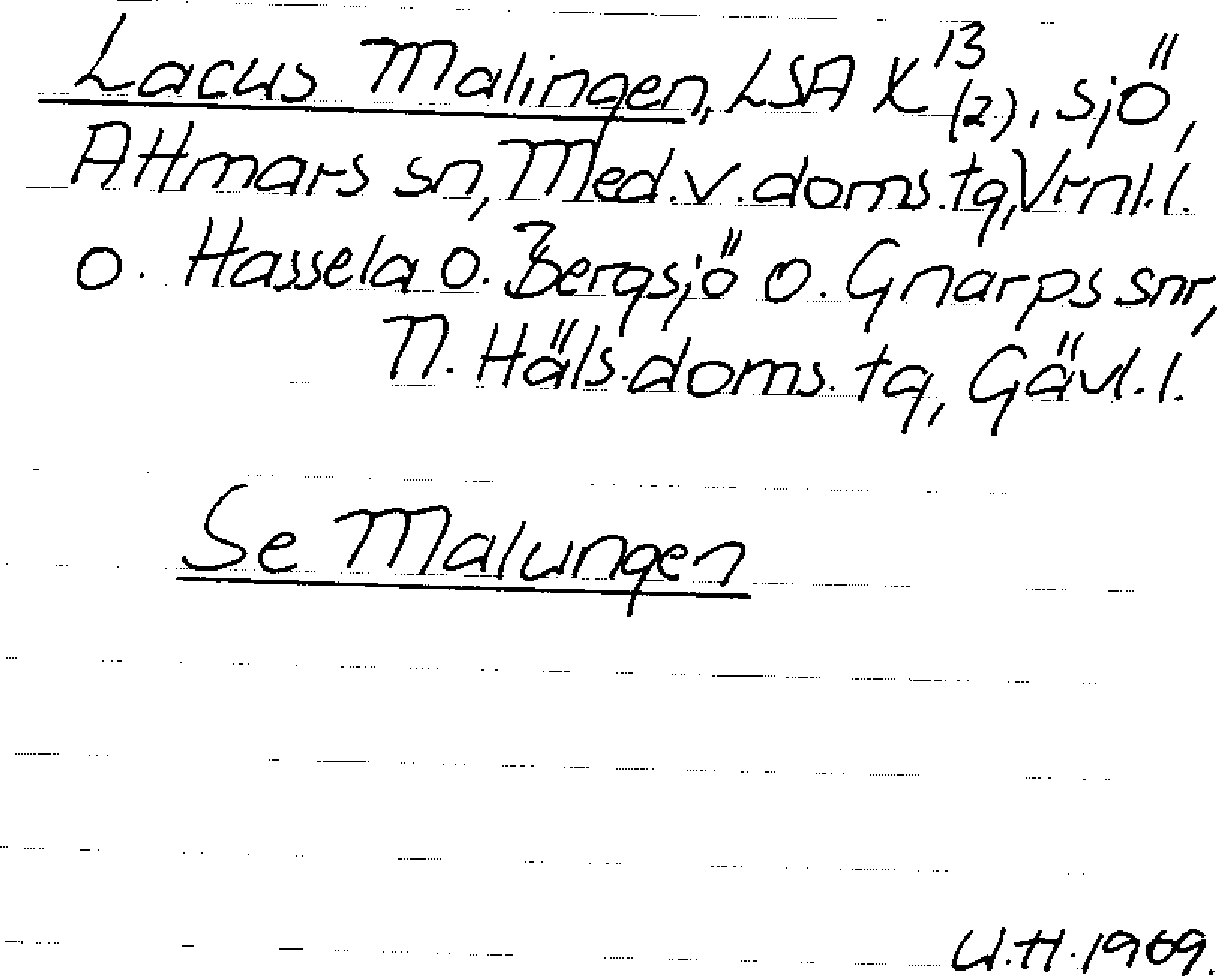 Lacus Malingen, LSA X 13 (2), sjö,
Attmars sn, Med.v.doms.tg, Vrnl.l.
o. Hassela o. Bergsjö o. Gnarps snr,
N. Häls.doms.tg, Gävl.l.
Se Malungen
U.H.1969.